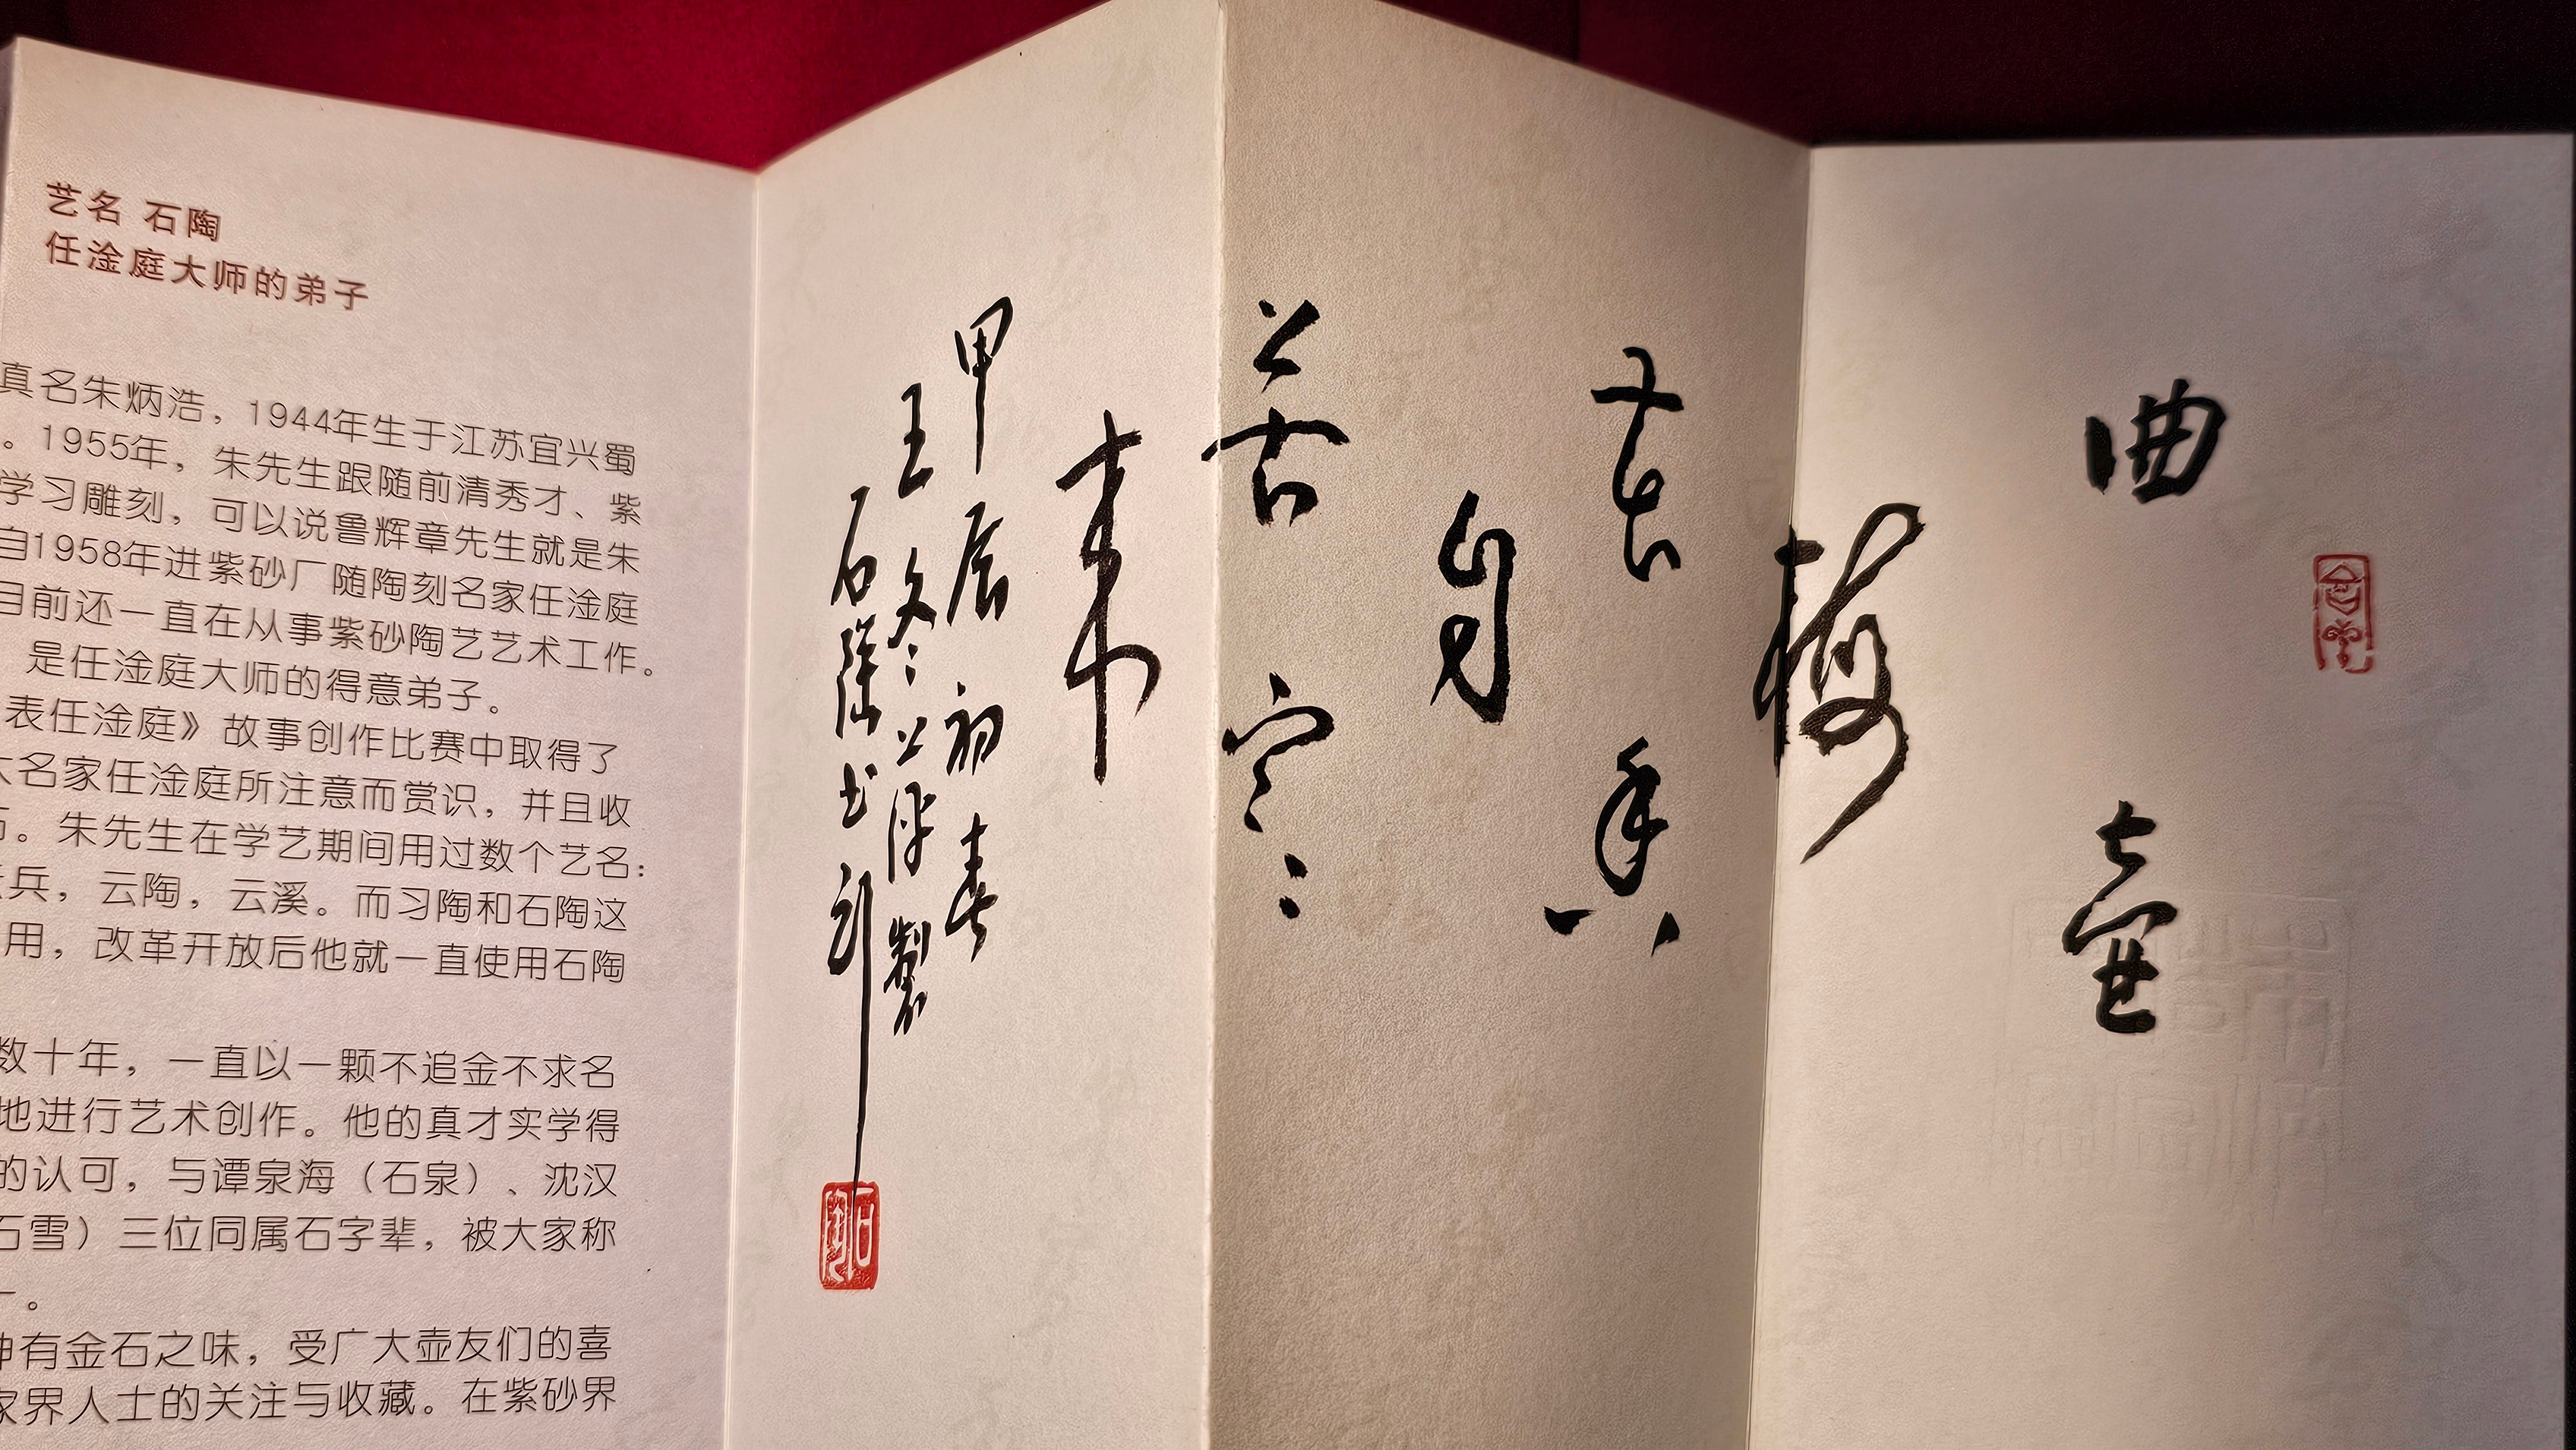 艺名 石陶
任淦庭大师的弟子
真名朱炳浩，1944年生于江苏宜兴蜀
。1955年，朱先生跟随前清秀才、紫
学习雕刻，可以说鲁辉章先生就是朱
自1958年进紫砂厂随陶刻名家任淦庭
目前还一直在从事紫砂陶艺艺术工作。
是任淦庭大师的得意弟子。
表任淦庭》故事创作比赛中取得了
大名家任淦庭所注意而赏识，并且收
。朱先生在学艺期间用过数个艺名：
兵，云陶，云溪。而习陶和石陶这
用，改革开放后他就一直使用石陶
数十年，一直以一颗不追金不求名
地进行艺术创作。他的真才实学得
的认可，与谭泉海（石泉）、沈汉
石雪）三位同属石字辈，被大家称
。
有金石之味，受广大壶友们的喜
家界人士的关注与收藏。在紫砂界
曲壶
梅
花香
自
苦寒
来
甲辰初春
王文製
石陶书刻
石陶